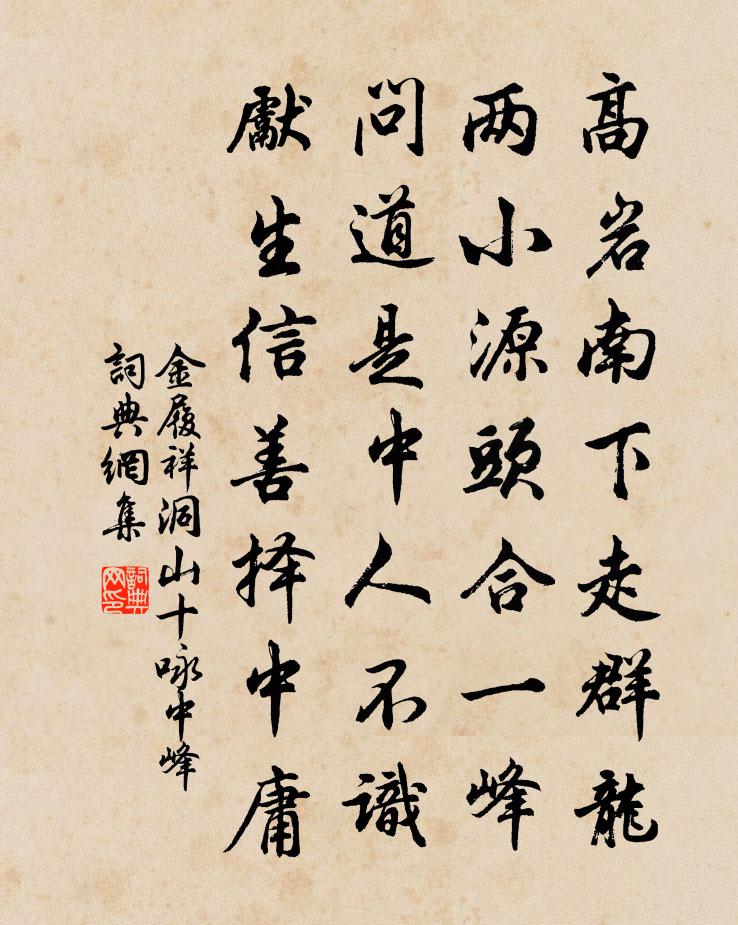 高岩南下走群龍
两小源頭合一峰
問道是中人不識
獻生信善择中庸
金履祥洞山十咏中峰
詞典網集
詞典网印